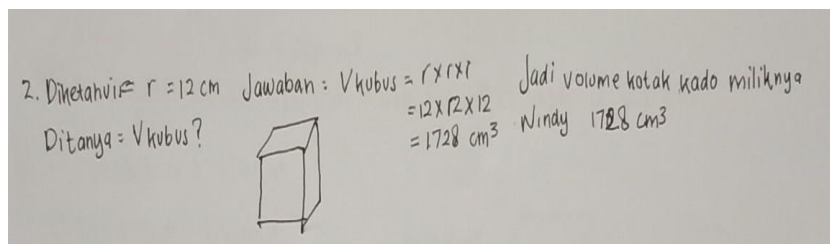 2. Diketahui = r = 12 cm
Ditanya = V kubus?
Jawaban : V kubus = r x r x r
= 12 x 12 x 12
= 1728 cm³
Jadi volume kotak kado miliknya
Windy 1728 cm³